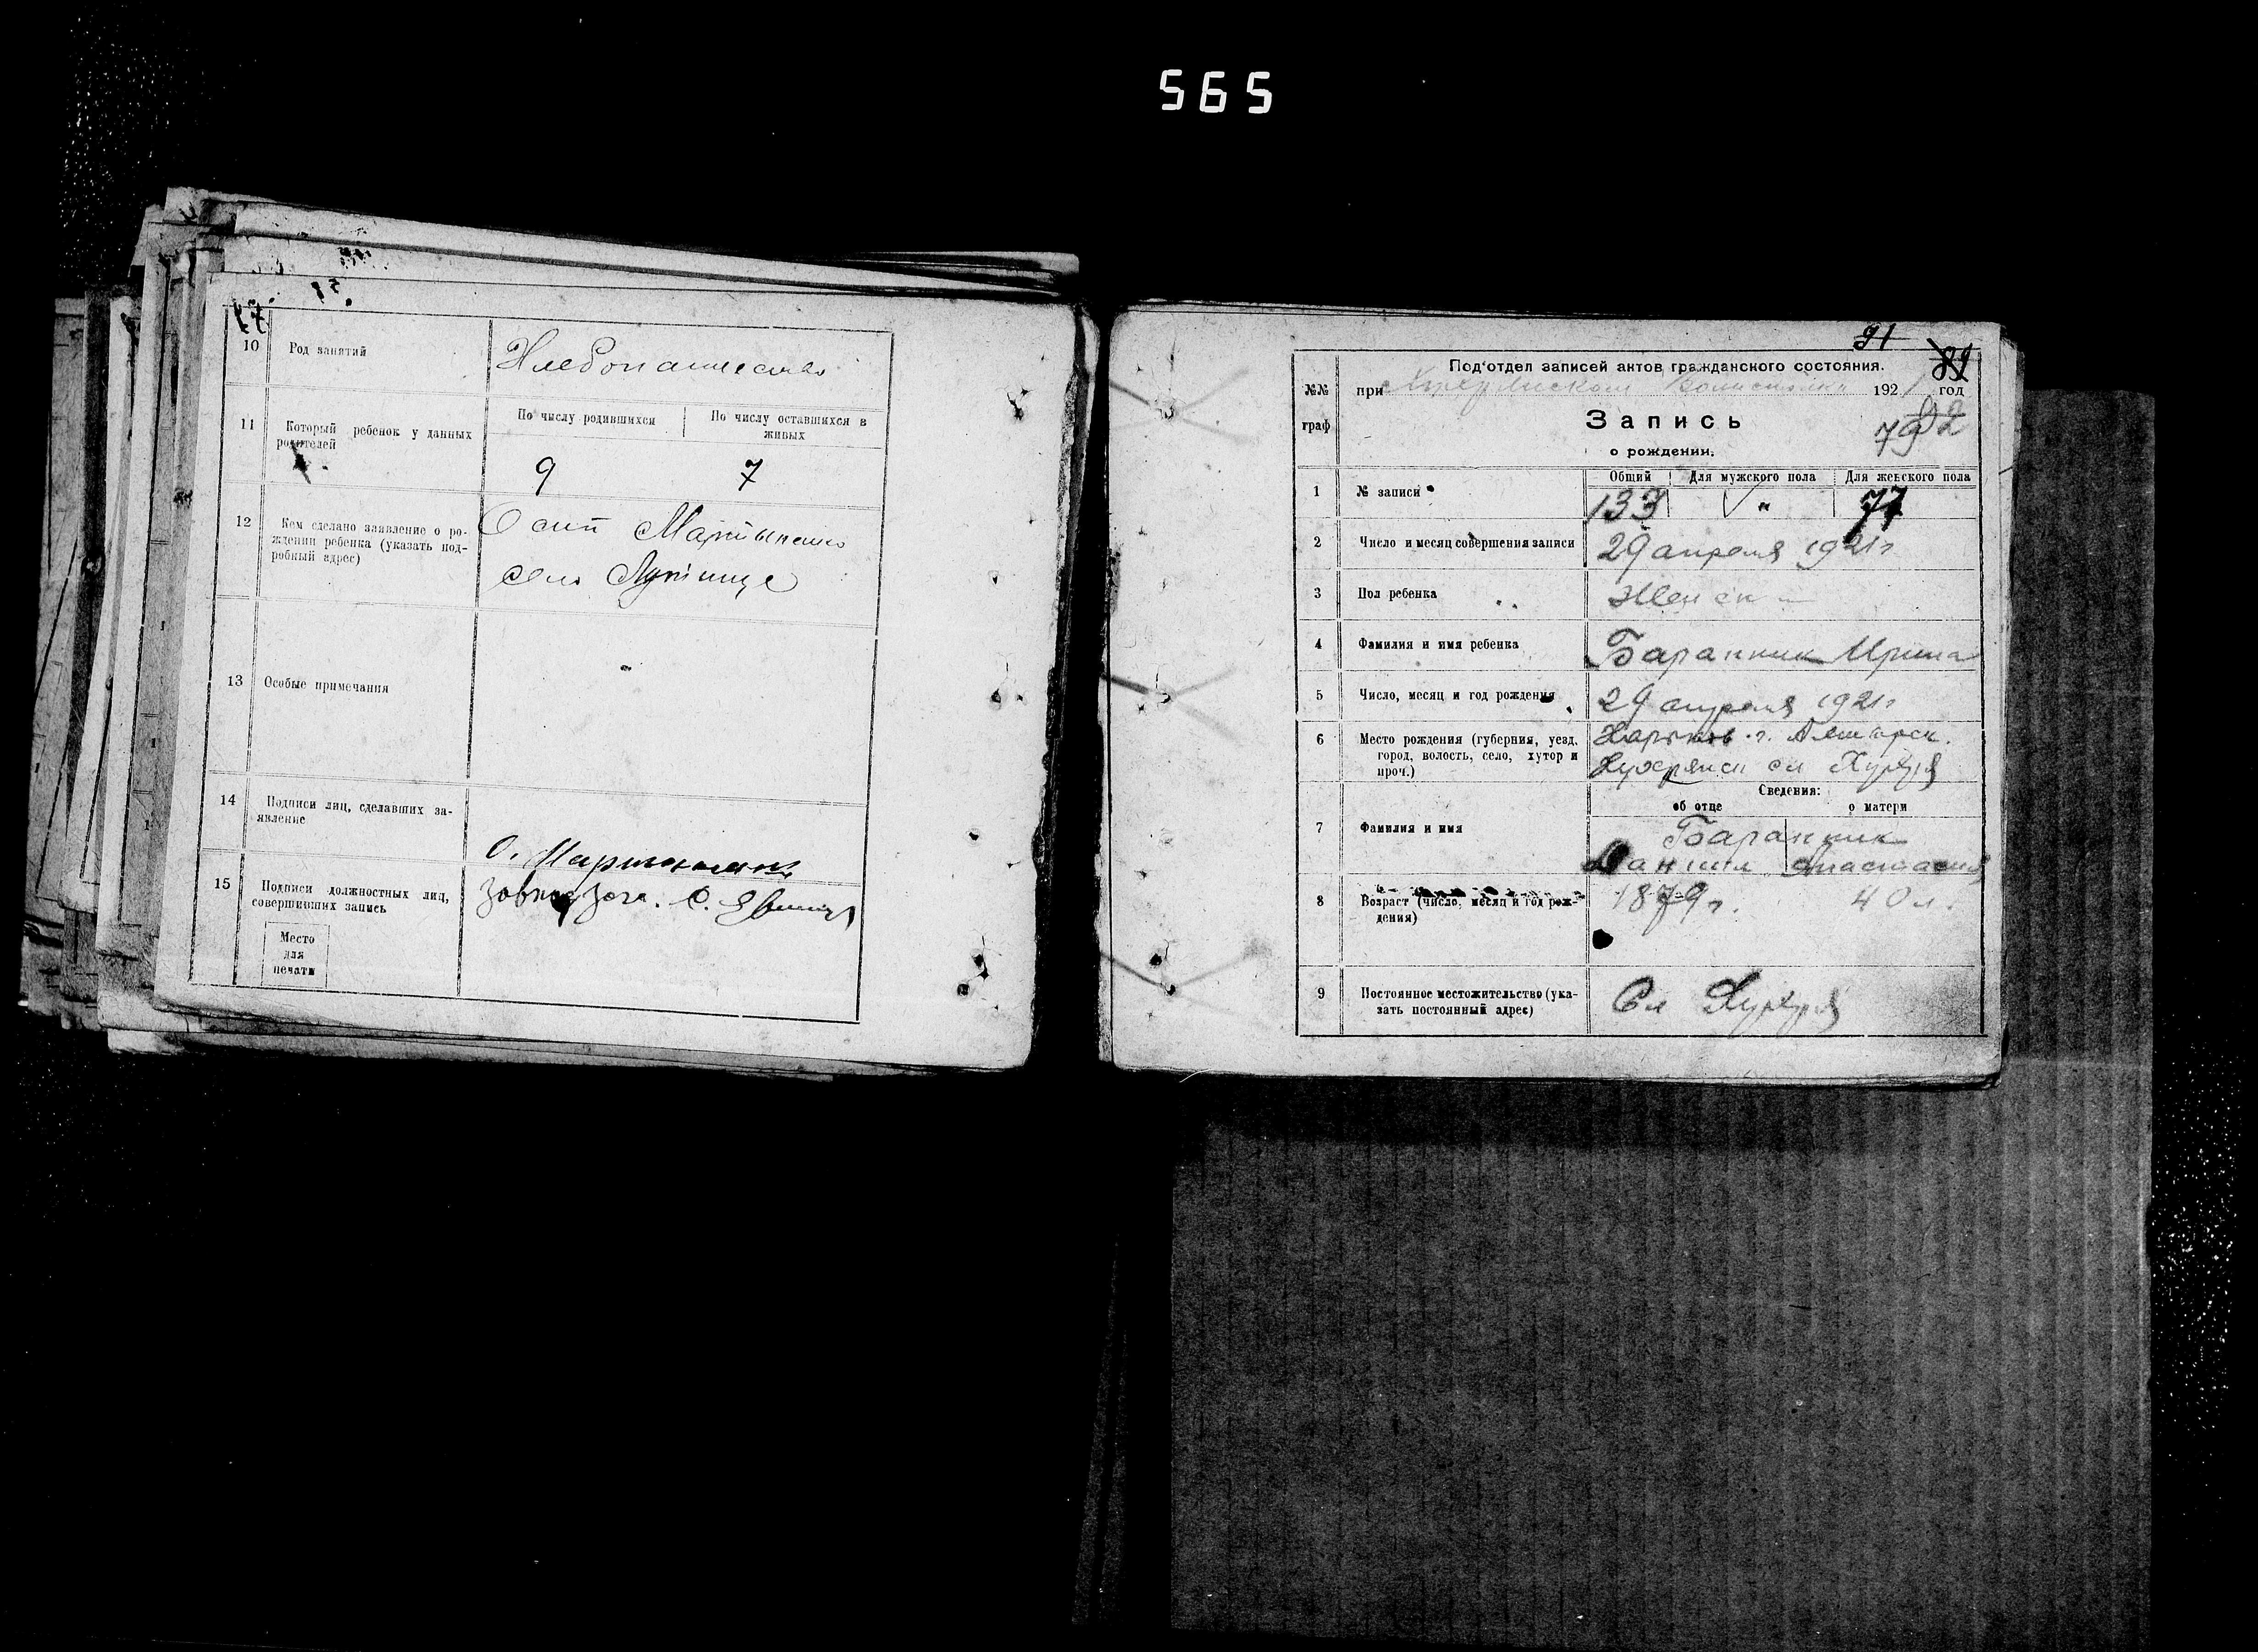 565
10 Род занятий Хлебопашество
11 Который ребенок у данных
родителей
По числу родившихся По числу оставшихся в
живых
9 7
12 Кем сделано заявление о ро-
ждении ребенка (указать под-
робный адрес)
Осип Мартыненко
село
13 Особые примечания
14 Подписи лиц, сделавших за-
явление
О. Мартыненко
15 Подписи должностных лиц,
совершивших запись
Место
для
печати
91
Под'отдел записей актов гражданского состояния.
№№ при 1921 год
граф Запись
79 92
о рождении.
Общий Для мужского пола Для женского пола
1 № записи 133 " 77
2 Число и месяц совершения записи 29 апреля 1921 г
3 Пол ребенка Женск
4 Фамилия и имя ребенка Баранник Ирина
5 Число, месяц и год рождения 29 апреля 1921 г
6 Место рождения (губерния, уезд,
город, волость, село, хутор и
проч.)
Харьков. г. Ахтырск.
сл
Сведения:
об отце о матери
7 Фамилия и имя
Баранник
Даниил Анастасия
8 Возраст (число, месяц и год рож-
дения)
1879 г. 40 л.
9 Постоянное местожительство (ука-
зать постоянный адрес)
Сл